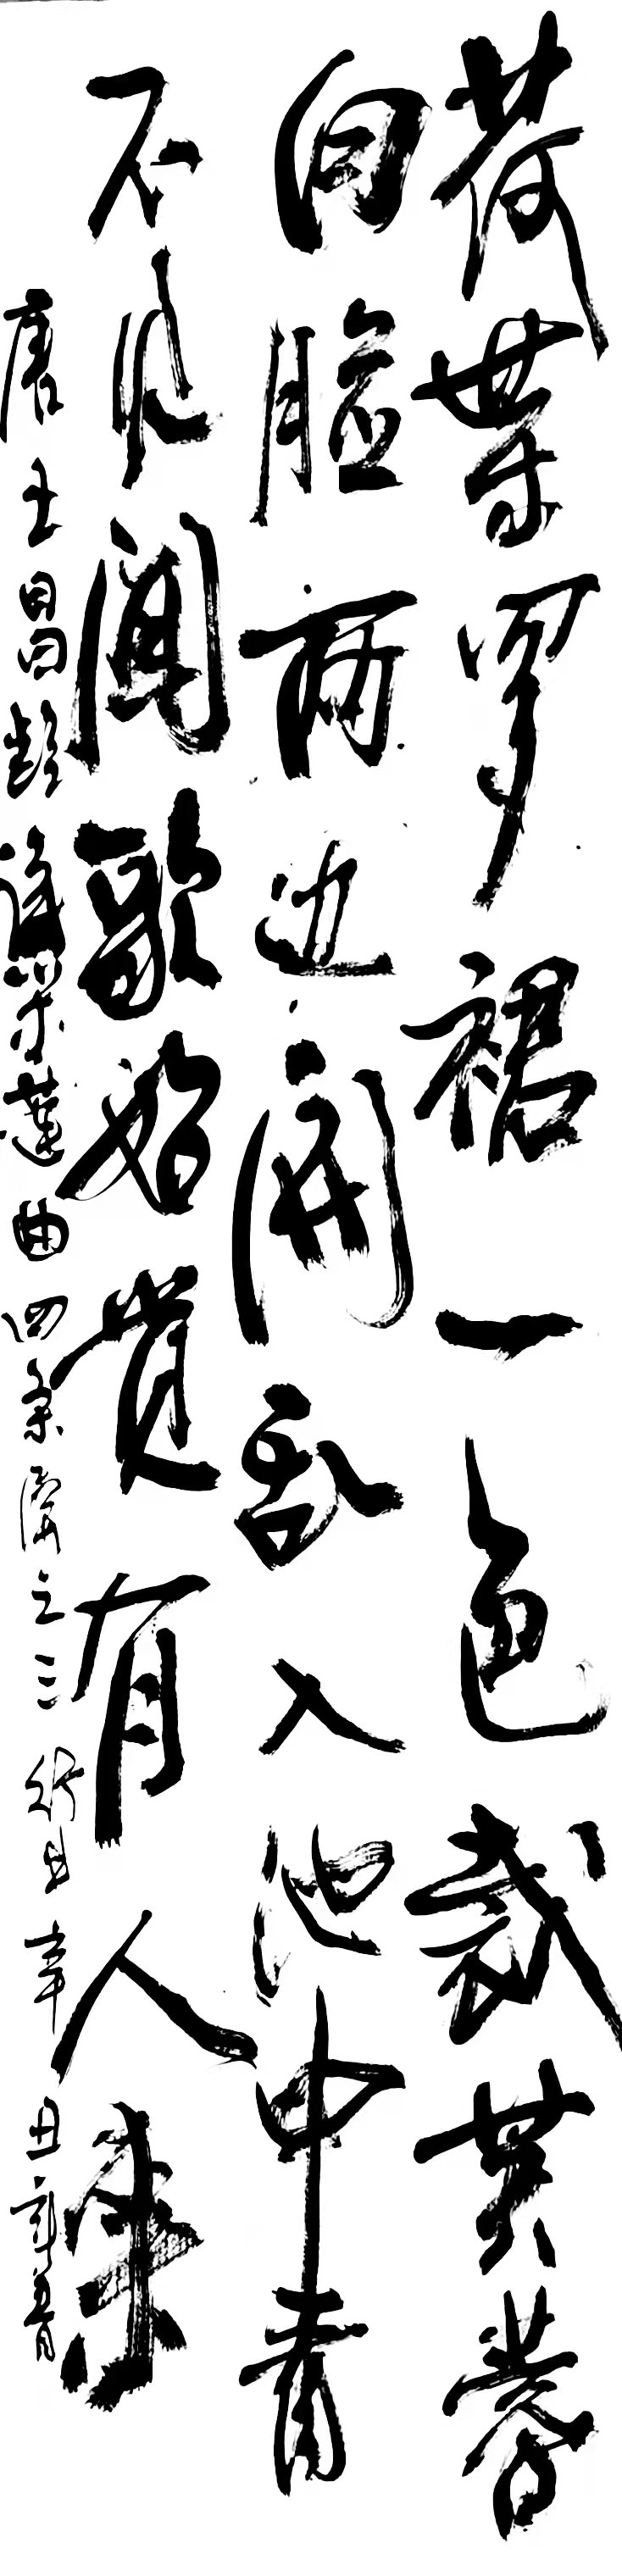 荷葉罗裙一色裁芙蓉
向脸两边開乱入池中看
不见闻歌始觉有人来
唐王昌龄采莲曲四条屏之三 辛丑年